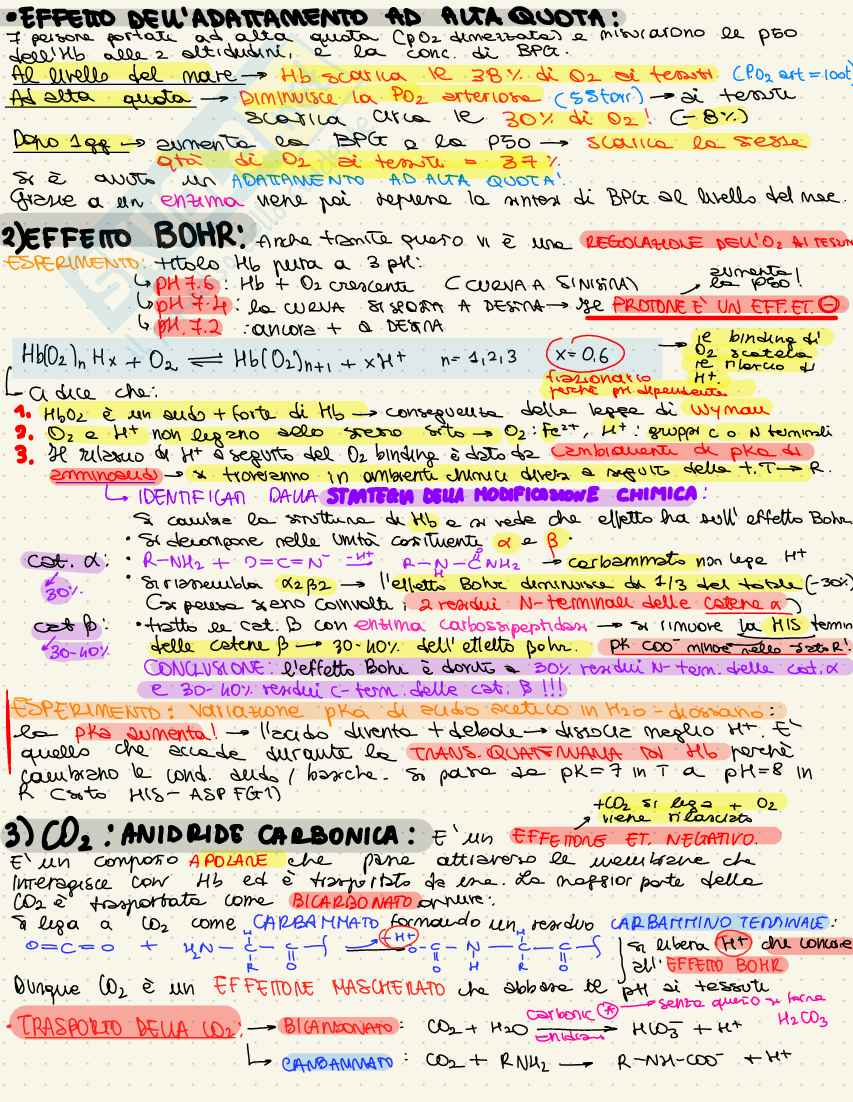 •EFFETTO DELL'ADATTAMENTO AD ALTA QUOTA:
7 persone portate ad alta quota (pO2 dimezzata) e misurarono le p50
dell'Hb alle 2 altitudini, e la conc. di BPG.
Al livello del mare → Hb scarica il 38% di O2 ai tessuti (PO2 art = 100t
Ad alta quota → DIMINUISCE la PO2 arteriosa (55torr) → ai tessuti
scarica circa il 30% di O2! (-8%)
Dopo 1gg → aumenta la BPG e la P50 → scarica la stessa
qtà di O2 ai tessuti = 37%
Si è avuto un ADATTAMENTO AD ALTA QUOTA!
Grazie a un enzima viene poi la sintesi di BPG al livello del mare.
2)EFFETTO BOHR: Anche tramite questo vi è una REGOLAZIONE DELL'O2 AI TESSUTI
ESPERIMENTO: titolo Hb pura a 3 pH:
↳ pH 7.6 : Hb + O2 crescente (CURVA A SINISTRA)
aumenta la P50!
↳ pH 7.4 : la CURVA SI SPOSTA A DESTRA → IL PROTONE È UN EFF.ET. ⊖
↳ pH. 7.2 : ancora + a DESTRA
Hb(O2)n Hx + O2 ⇌ Hb(O2)n+1 + xH+ n=1,2,3 x=0,6 → il binding di O2 scatena il rilascio di H+.
frazionario perché pH dipendente
↳ Ci dice che:
1. HbO2 è un acido + forte di Hb → conseguenza della legge di Wyman
2. O2 e H+ non legano allo stesso sito → O2: Fe2+, H+: gruppi C o N terminali
3. Il rilascio di H+ a seguito del O2 binding è dato da cambiamenti di pka di
amminoacidi → si troveranno in ambienti chimici diversi a seguito della t.T → R.
↳ IDENTIFICATI DALLA STRATEGIA DELLA MODIFICAZIONE CHIMICA:
Si cambia la struttura di Hb e si vede che effetto ha sull'effetto Bohr
• Si decompone nelle unità costituente α e β
cat. α: • R-NH2 + O=C=N- -H+→ R-N-C-NH2 → carbammato non lega H+
H O
30% • Si riassembla α2β2 → l'effetto Bohr diminuisce di 1/3 del totale (-30%)
Ci pensa siano coinvolti i 2 residui N-terminali delle catene α)
cat β: • tratto le cat. β con enzima carbossipeptidasi → si rimuove la HIS termin
30-40% delle catene β → 30-40% dell'effetto bohr. pK COO- minore nello stato R!
CONCLUSIONE: l'effetto Bohr è dovuto a 30% residui N-term. delle cat. α
e 30-40% residui C-term. delle cat. β !!!
ESPERIMENTO: Variazione pka di acido acetico in H2O-diossano:
la pka aumenta! → l'acido diventa + debole → dissocia meglio H+. E'
quello che accade durante la TRANS. QUATERNARIA DI Hb perché
cambiano le cond. acido / basiche. Si passa da pK=7 in T a pH=8 in
R (sito HIS-ASP FG1)
+CO2 si lega + O2 viene rilasciato
3) CO2: ANIDRIDE CARBONICA: E' un EFFETTORE ET. NEGATIVO.
E' un composto APOLARE che passa attraverso le membrane che
interagisce con Hb ed è trasportato da essa. La maggior parte della
CO2 è trasportata come BICARBONATO oppure:
Si lega a CO2 come CARBAMMATO formando un residuo CARBAMMINO TERMINALE:
O=C=O + H2N-C-C- +H+ O-C-N-C-C- si libera H+ che concorre
H R O O H H R O all'EFFETTO BOHR
Dunque CO2 è un EFFETTORE MASCHERATO che abbassa il pH ai tessuti
• TRASPORTO DELLA CO2: → BICARBONATO: CO2 + H2O carbonic anidrasi (*) → HCO3- + H+
→ senza questo si forma H2CO3
↳ CARBAMMATO: CO2 + RNH2 → R-NH-COO- + H+